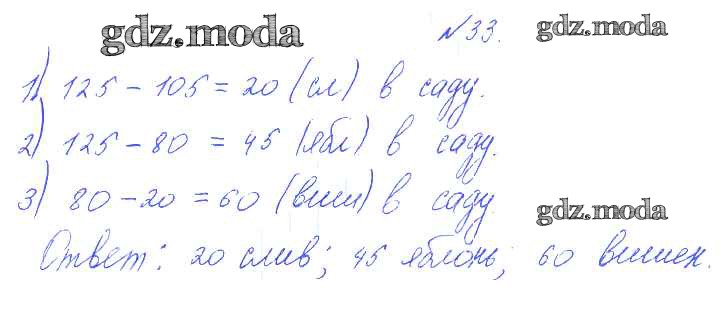 gdz.moda №33. gdz.moda
1) 125 - 105 = 20 (сл) в саду.
2) 125 - 80 = 45 (ябл) в саду.
3) 80 - 20 = 60 (виш) в саду.
gdz.moda
Ответ: 20 слив; 45 яблонь; 60 вишен.